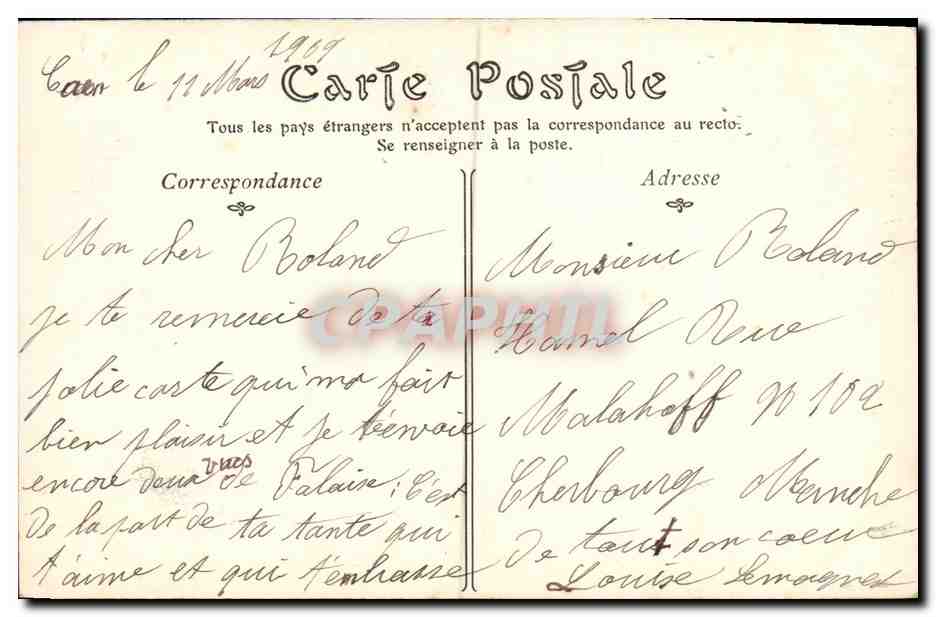 Caen le 11 Mars 1909
Carte Postale
Tous les pays étrangers n'acceptent pas la correspondance au recto.
Se renseigner à la poste.
Correspondance
Mon cher Roland
je te remercie de ta
jolie carte qui ma fait
bien plaisir et je t'envoie
encore deux vues de Falaise; C'est
de la part de ta tante qui
t'aime et qui t'embrasse
Adresse
Monsieur Roland
Hamel Rue
Malakoff N
Cherbourg Manche
de tout son coeur
Louise
CPAPHIL